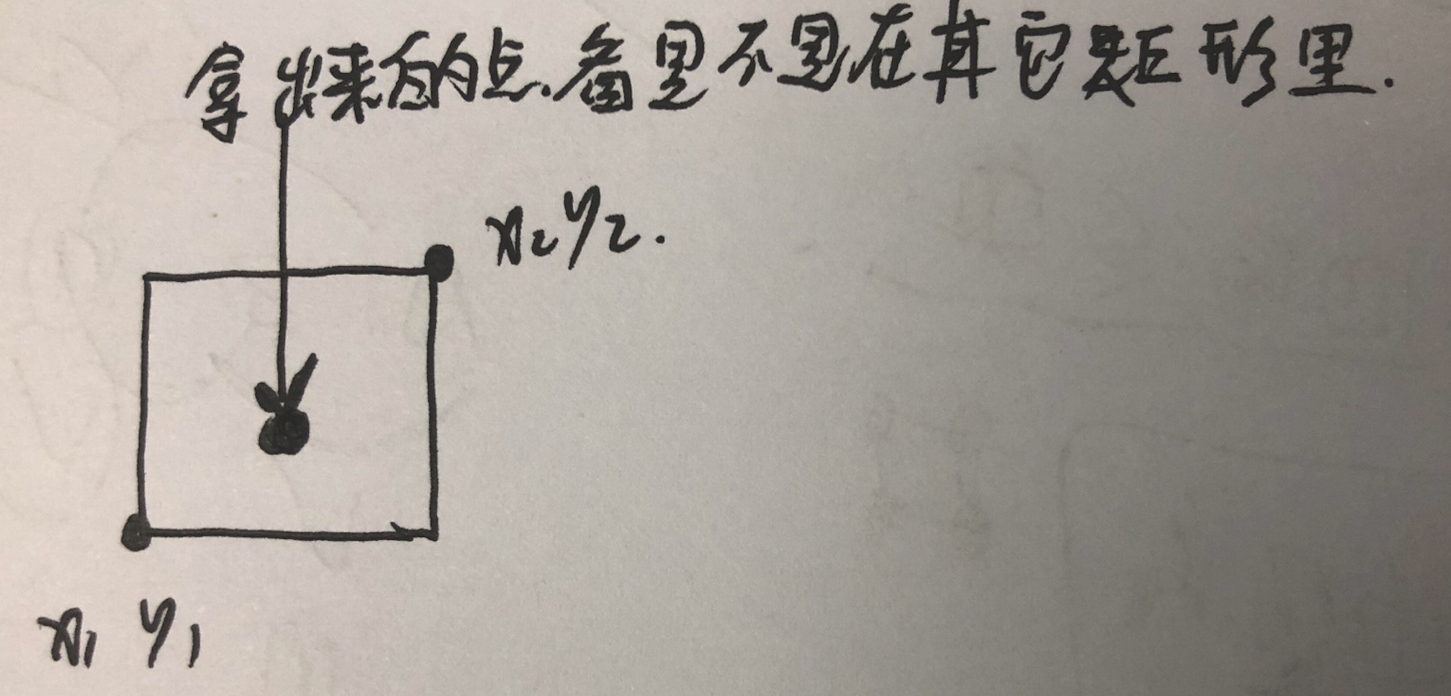 拿出来的点.看是不是在其它矩形里.
x₂y₂.
x₁ y₁